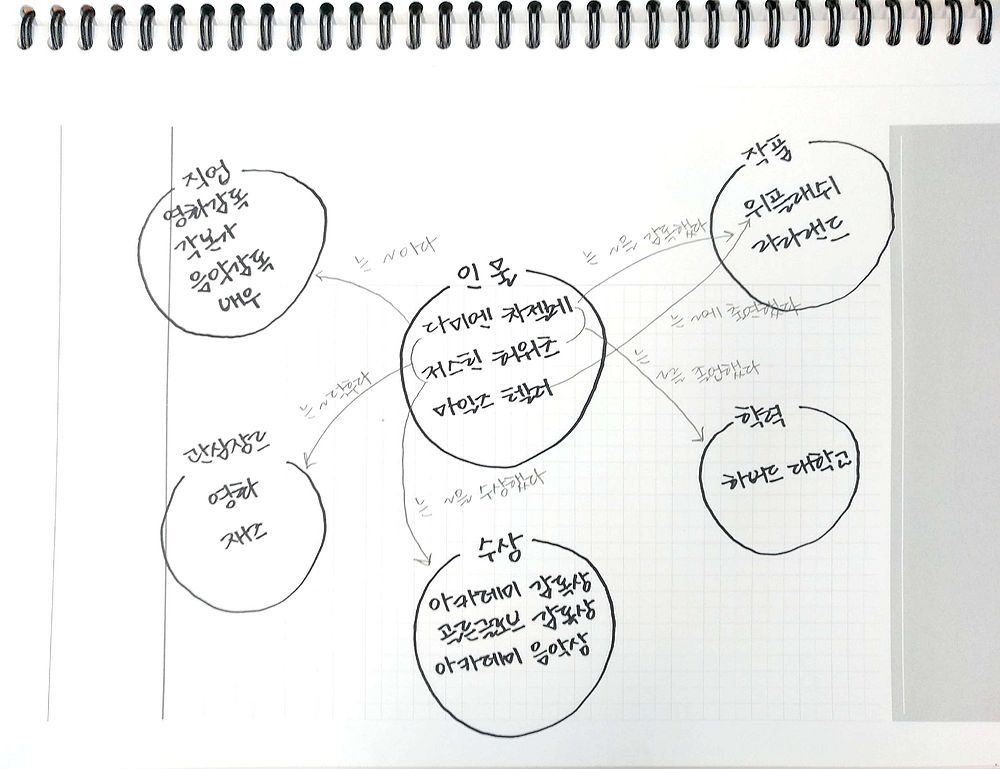 직업
영화감독
각본가
음악감독
배우
작품
위플래쉬
라라랜드
는 ~을 감독했다
는 ~이다
인물
다미엔 차젤레
저스틴 허위츠
마일즈 텔러
는 ~에 출연했다
는 ~를 졸업했다
는 ~한다
관심장르
영화
재즈
학력
하버드 대학교
는 ~을 수상했다
수상
아카데미 감독상
골든글로브 감독상
아카데미 음악상